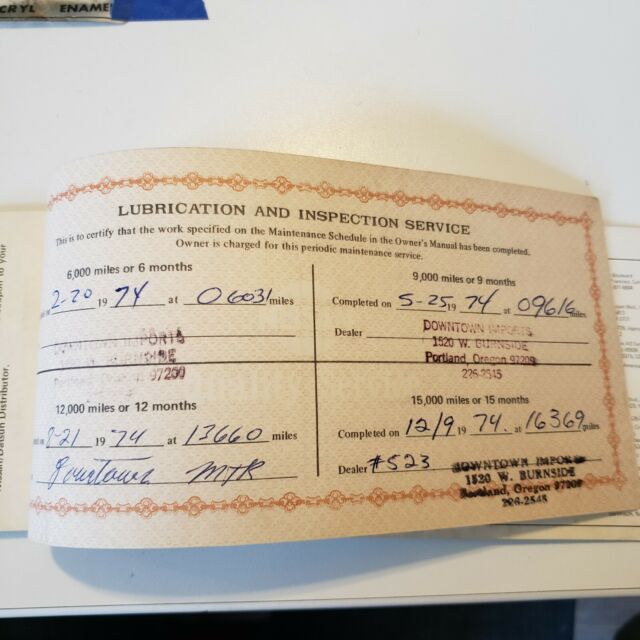 CRYL ENAME
LUBRICATION AND INSPECTION SERVICE
This is to certify that the work specified on the Maintenance Schedule in the Owner's Manual has been completed.
Owner is charged for this periodic maintenance service.
6,000 miles or 6 months
2-20 1974 at 06031 miles
DOWNTOWN IMPORTS
BURNSIDE
97209
9,000 miles or 9 months
Completed on 5-25 1974 at 09616 miles
Dealer
DOWNTOWN IMPORTS
1520 W. BURNSIDE
Portland, Oregon 97209
226-2545
12,000 miles or 12 months
8-21 1974 at 13660 miles
Downtown MTR
15,000 miles or 15 months
Completed on 12/9 1974. at 16369 miles
Dealer #523
DOWNTOWN IMPORTS
1520 W. BURNSIDE
Portland, Oregon 97209
226-2545
Nissan/Datsun Distributor.